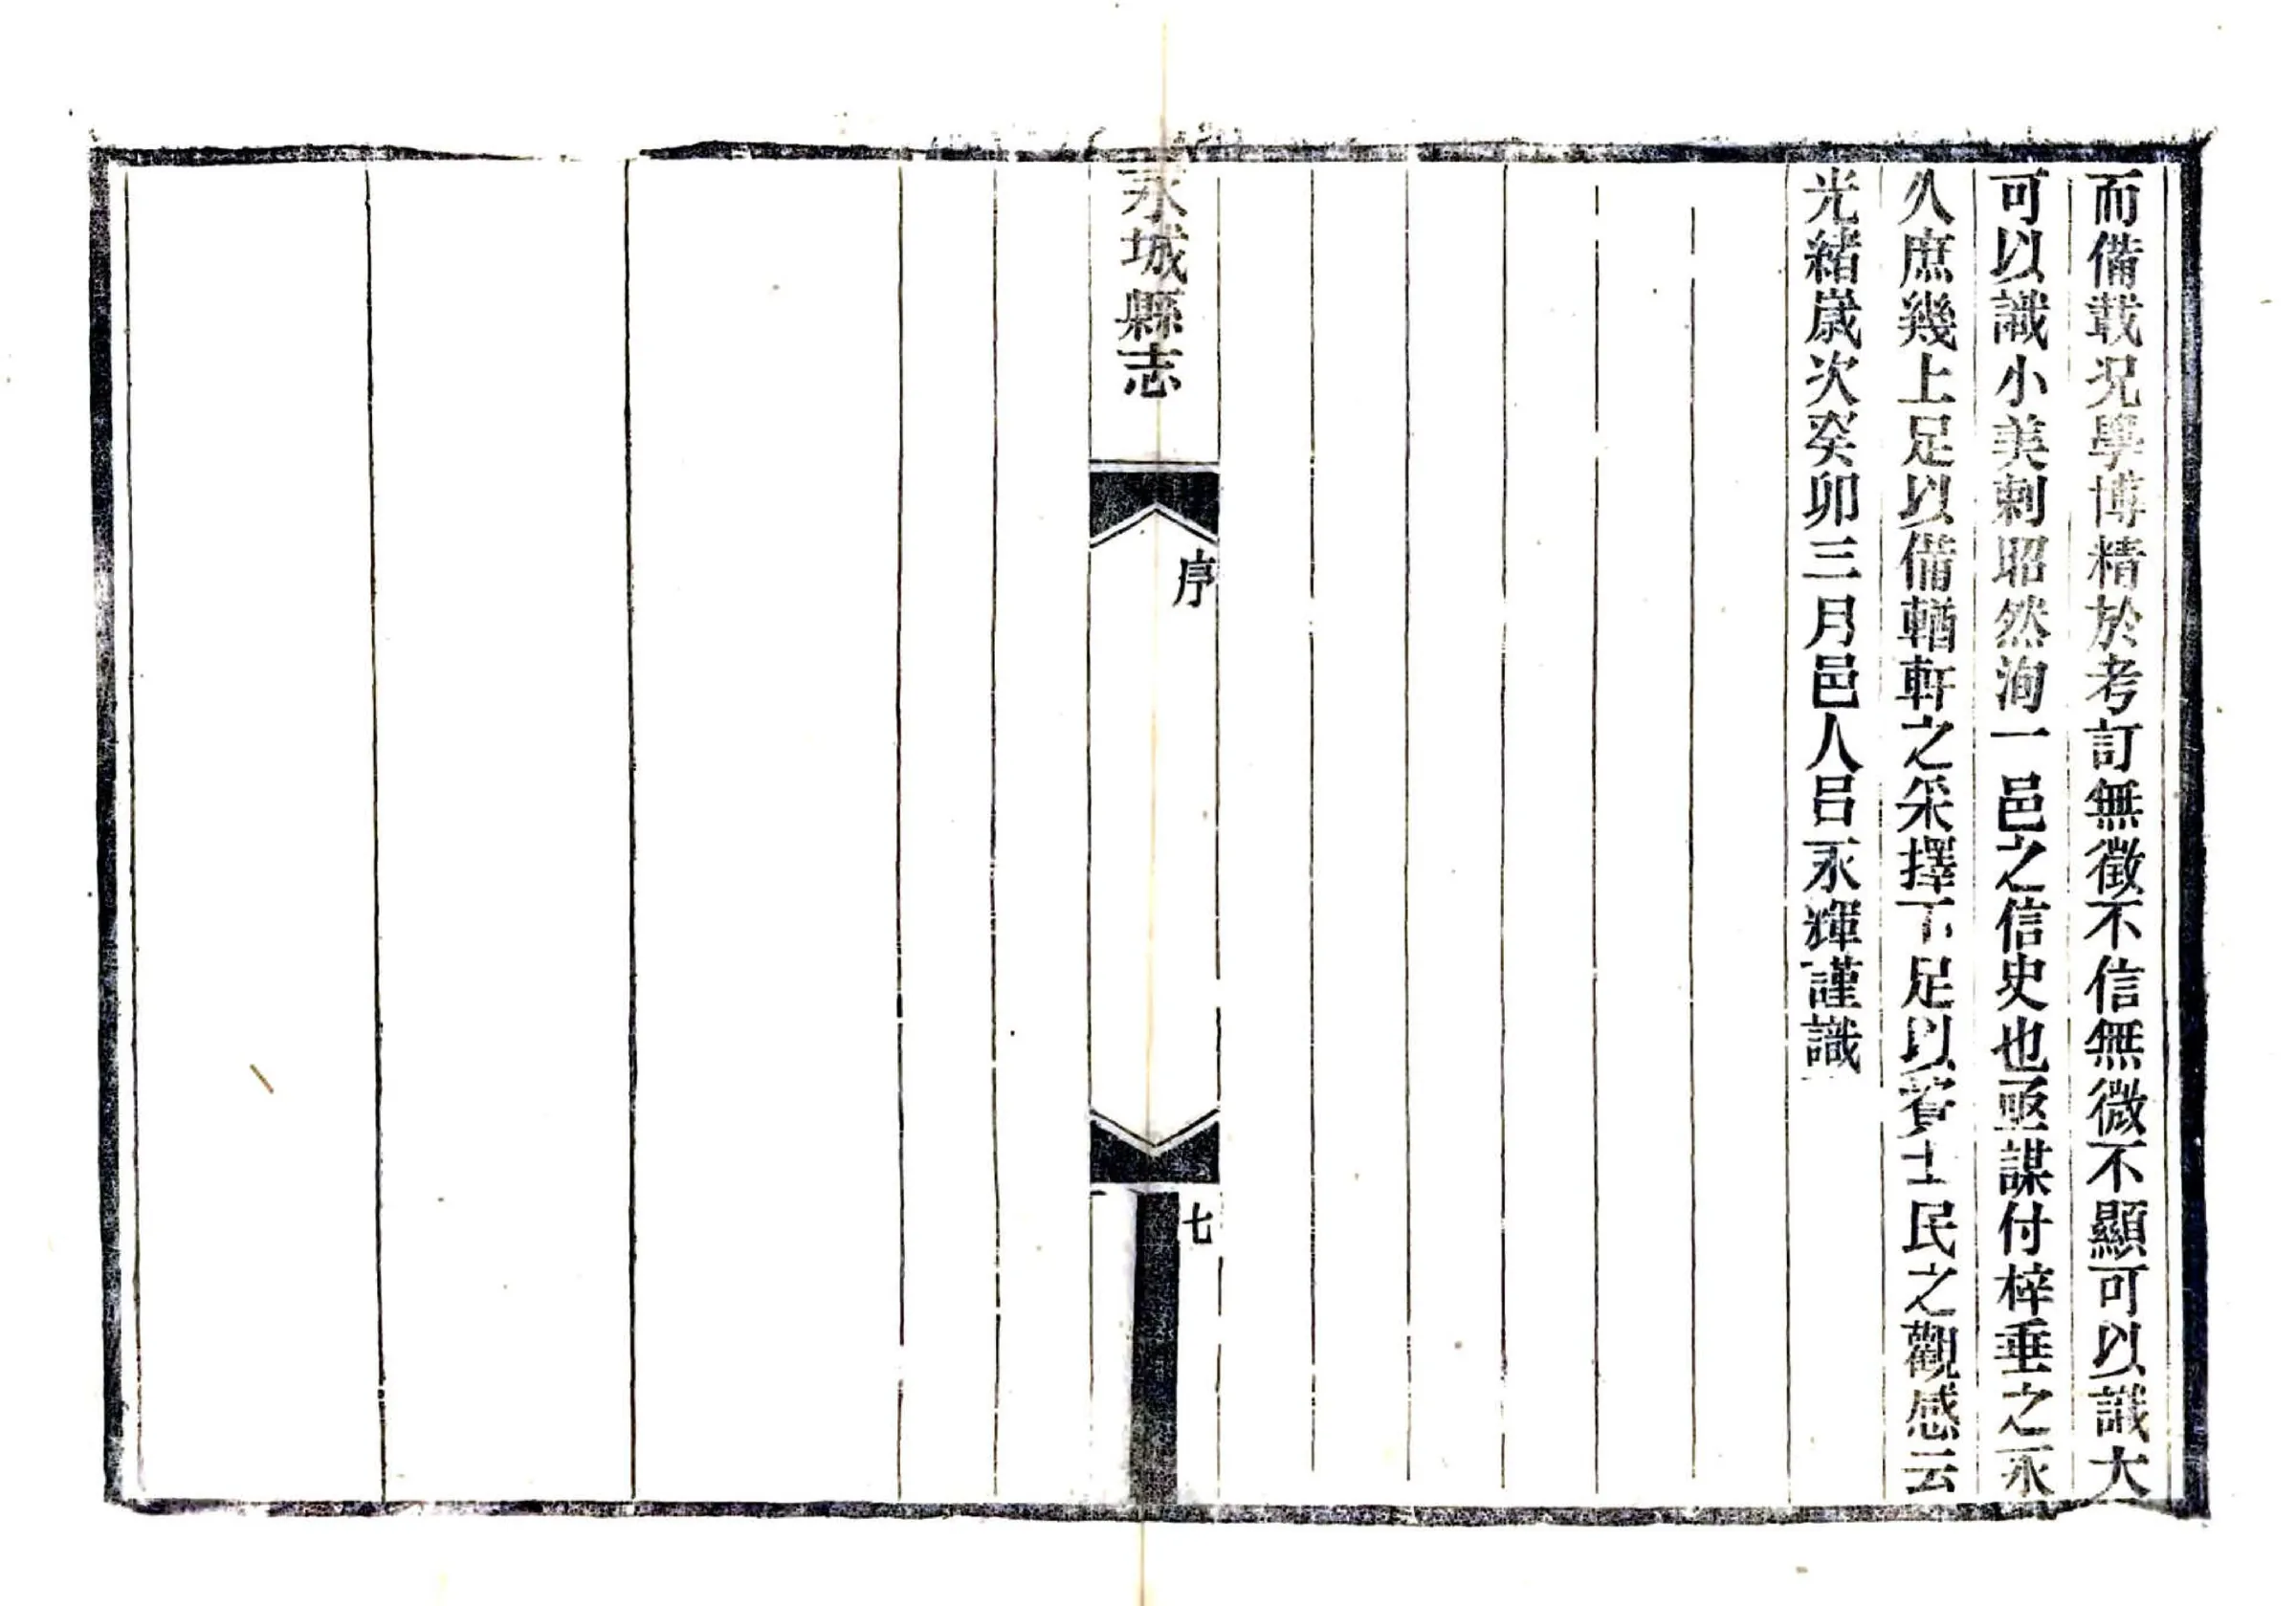 而備載况學博精於考訂無徵不信無微不顯可以識大
可以識小美刺昭然洵一邑之信史也亟謀付梓垂之永
久庶幾上足以備輶軒之采擇下足以資士民之觀感云
光緖歲次癸卯三月邑人呂永輝謹識
永城縣志
序
七